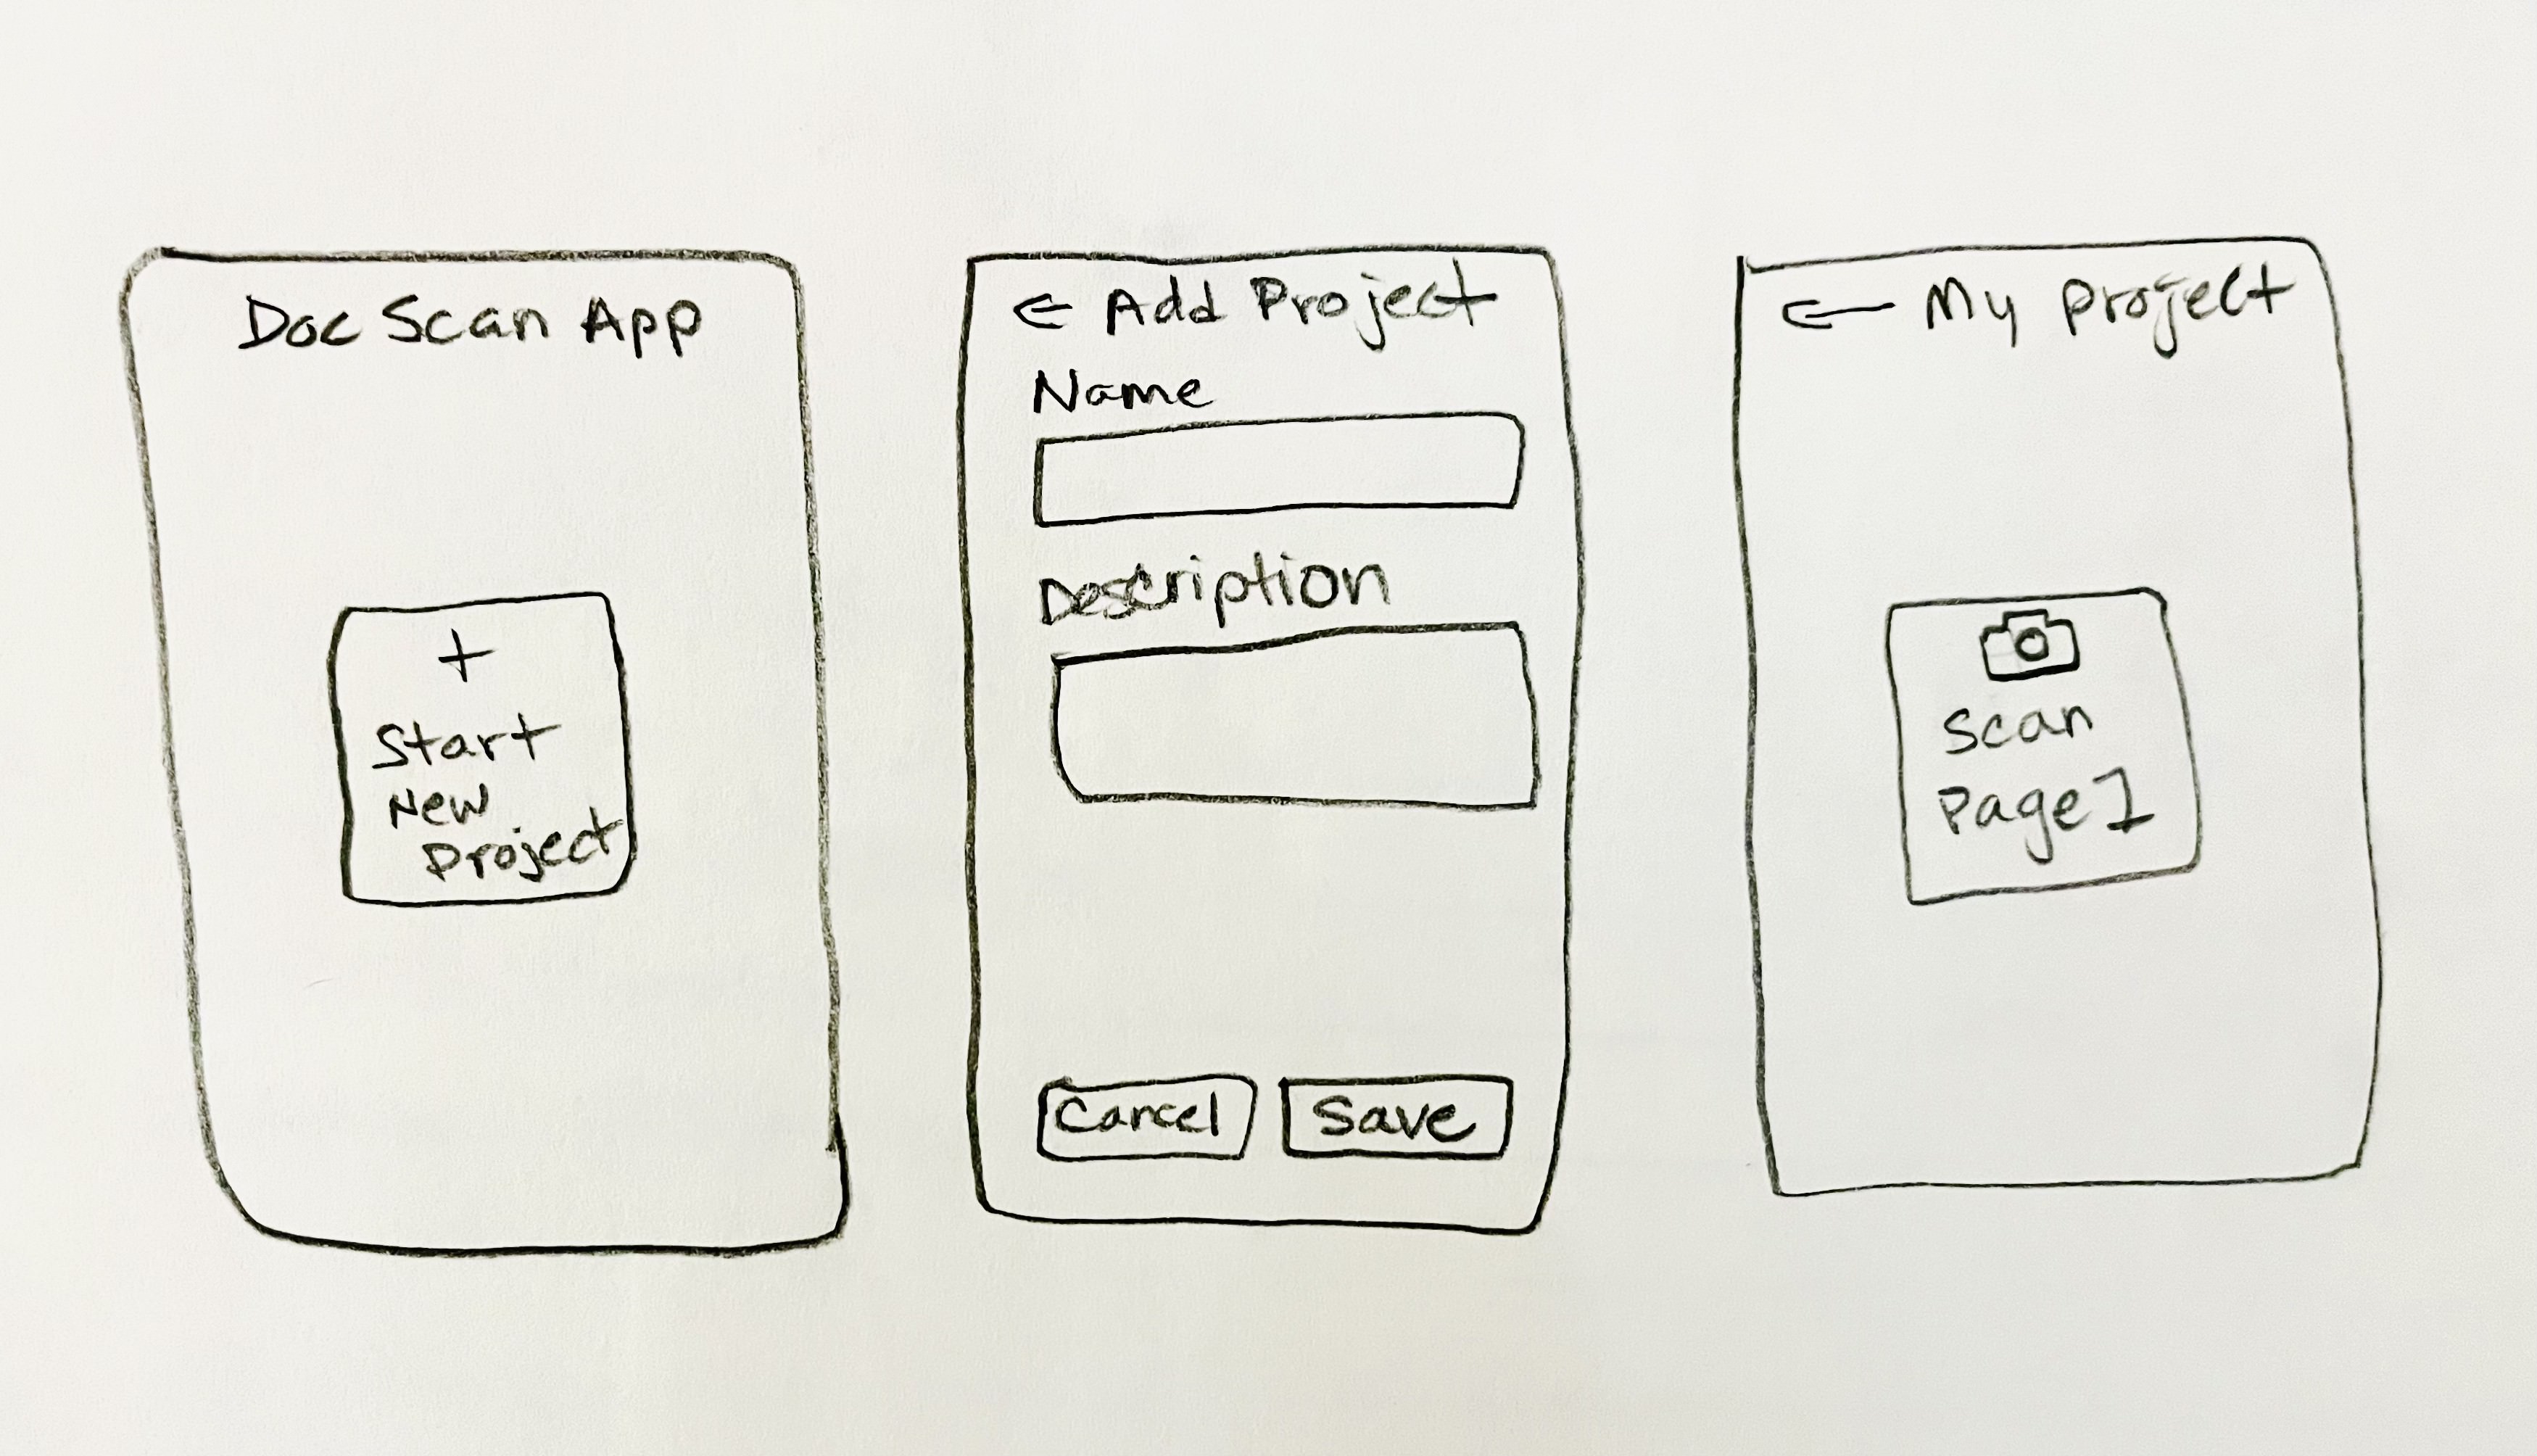 Doc Scan App
+
Start
New
Project
← Add Project
Name
Description
Cancel
Save
← My project
Scan
Page 1